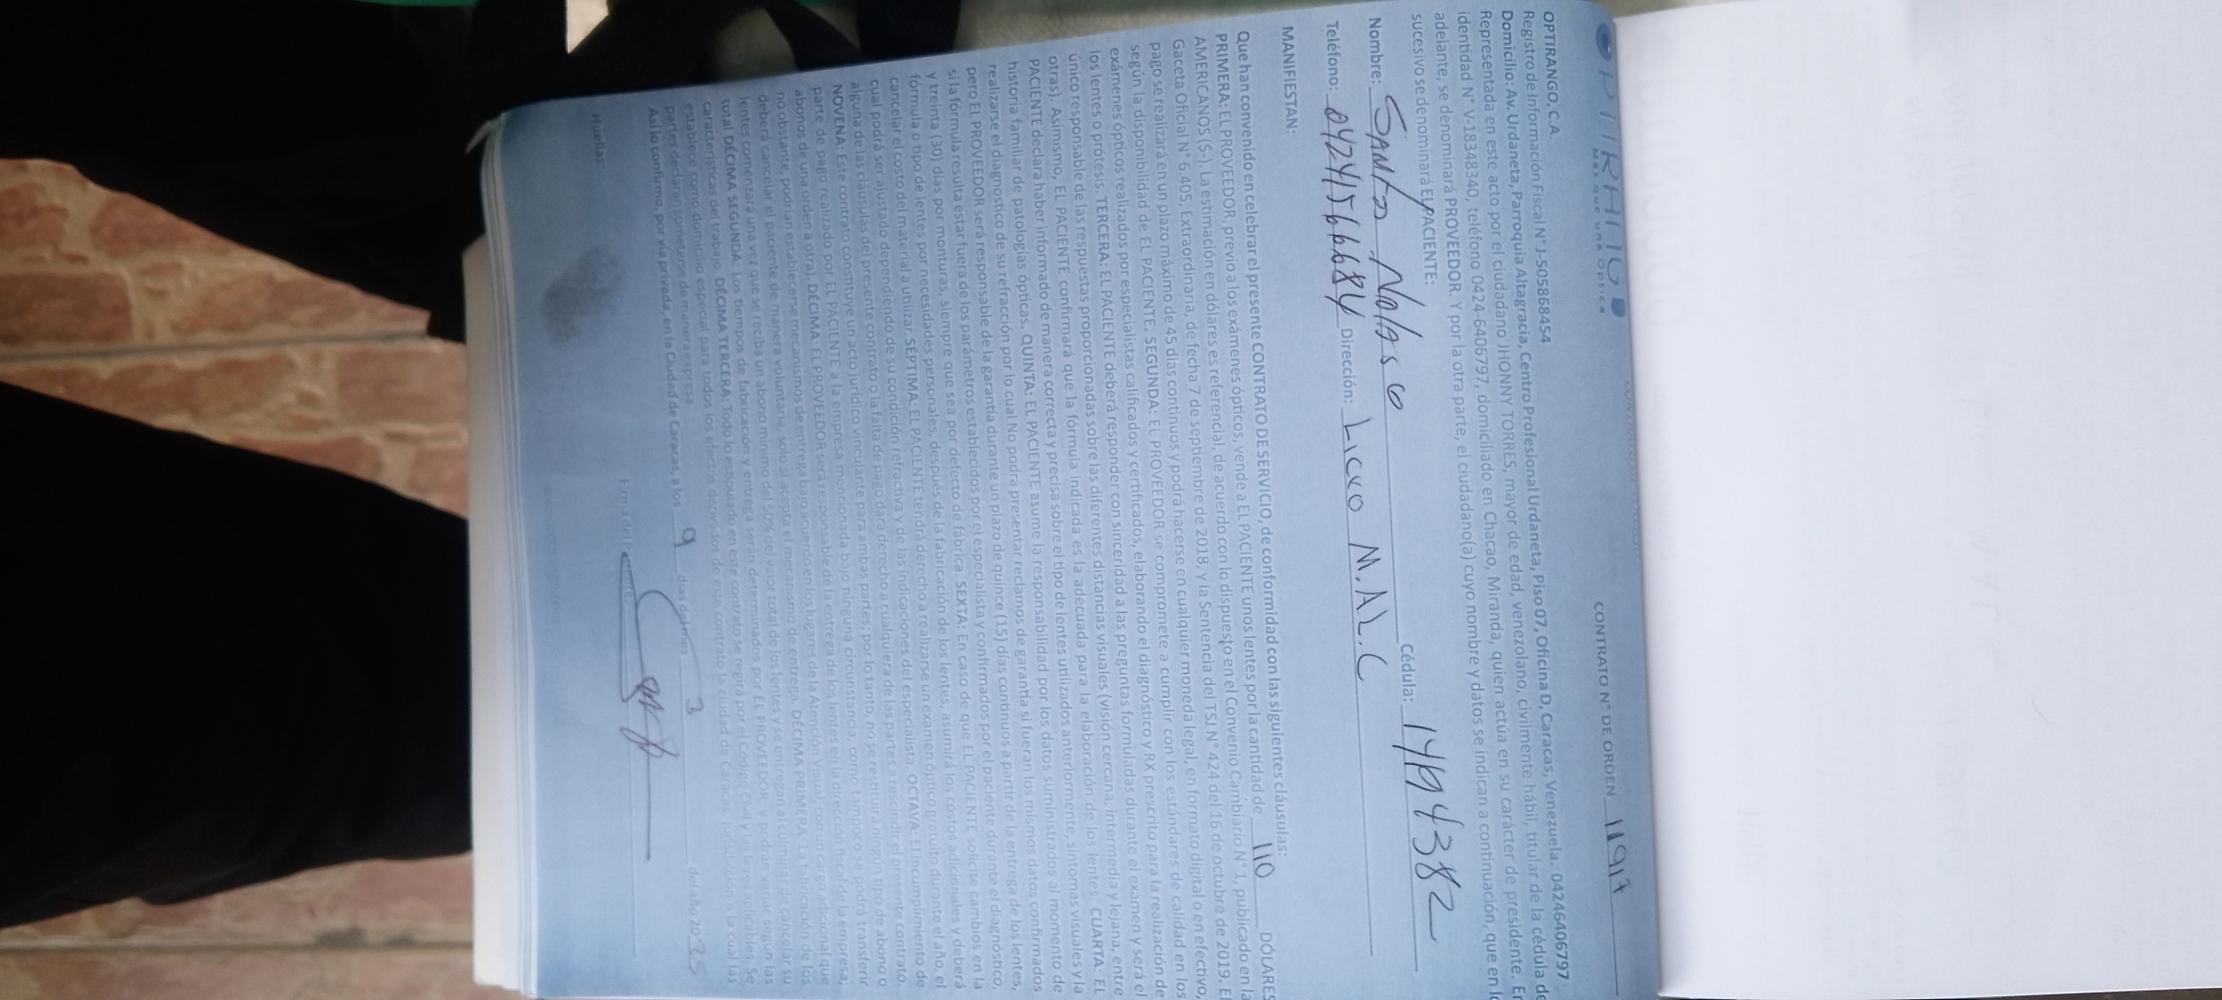 OPTIRANGO
MÁS QUE UNA ÓPTICA
CONTRATO N° DE ORDEN 11917
OPTIRANGO, C.A.
Registro de Información Fiscal N° J-505868454
Domicilio: Av. Urdaneta, Parroquia Altagracia, Centro Profesional Urdaneta, Piso 07, Oficina D, Caracas, Venezuela. 04246406797
Representada en este acto por el ciudadano JHONNY TORRES, mayor de edad, venezolano, civilmente hábil, titular de la cédula de
identidad N° V-18348340, teléfono 0424-6406797, domiciliado en Chacao, Miranda, quien actúa en su carácter de presidente. En
adelante, se denominará PROVEEDOR. Y por la otra parte, el ciudadano(a) cuyo nombre y datos se indican a continuación, que en lo
sucesivo se denominará EL PACIENTE:
Nombre: Santos Nolasco Cédula: 14194382
Teléfono: Dirección: Licxo M.AL.C
MANIFIESTAN:
Que han convenido en celebrar el presente CONTRATO DE SERVICIO, de conformidad con las siguientes cláusulas:
PRIMERA: EL PROVEEDOR, previo a los exámenes ópticos, vende a EL PACIENTE unos lentes por la cantidad de 110 DÓLARES
AMERICANOS ($-). La estimación en dólares es referencial, de acuerdo con lo dispuesto en el Convenio Cambiario N° 1, publicado en la
Gaceta Oficial N° 6.405, Extraordinaria, de fecha 7 de septiembre de 2018, y la Sentencia del TSJ N° 424 del 16 de octubre de 2019. El
pago se realizará en un plazo máximo de 45 días continuos y podrá hacerse en cualquier moneda legal, en formato digital o en efectivo,
según la disponibilidad de EL PACIENTE. SEGUNDA: EL PROVEEDOR se compromete a cumplir con los estándares de calidad en los
exámenes ópticos realizados por especialistas calificados y certificados, elaborando el diagnóstico y RX prescrito para la realización de
los lentes o prótesis. TERCERA: EL PACIENTE deberá responder con sinceridad a las preguntas formuladas durante el examen y será el
único responsable de las respuestas proporcionadas sobre las diferentes distancias visuales (visión cercana, intermedia y lejana, entre
otras). Asimismo, EL PACIENTE confirmará que la fórmula indicada es la adecuada para la elaboración de los lentes. CUARTA: EL
PACIENTE declara haber informado de manera correcta y precisa sobre el tipo de lentes utilizados anteriormente, síntomas visuales y la
historia familiar de patologías ópticas. QUINTA: EL PACIENTE asume la responsabilidad por los datos suministrados al momento de
realizarse el diagnostico de su refracción por lo cual No podrá presentar reclamos de garantía si fueran los mismos datos confirmados
pero EL PROVEEDOR será responsable de la garantía durante un plazo de quince (15) días continuos a partir de la entrega de los lentes,
si la fórmula resulta estar fuera de los parámetros establecidos por el especialista y confirmados por el paciente durante el diagnóstico,
y treinta (30) días por monturas, siempre que sea por defecto de fábrica. SEXTA: En caso de que EL PACIENTE solicite cambios en la
fórmula o tipo de lentes por necesidades personales, después de la fabricación de los lentes, asumirá los costos adicionales y deberá
cancelar el costo del material a utilizar. SÉPTIMA: EL PACIENTE tendrá derecho a realizarse un examen óptico gratuito durante el año el
cual podrá ser ajustado dependiendo de su condición refractiva y de las indicaciones del especialista. OCTAVA: El incumplimiento de
alguna de las cláusulas del presente contrato o la falta de pago dará derecho a cualquiera de las partes a rescindir el presente contrato.
NOVENA: Este contrato constituye un acto jurídico vinculante para ambas partes; por lo tanto, no se restituirá ningún tipo de abono o
parte de pago realizado por EL PACIENTE a la empresa mencionada bajo ninguna circunstancia, como tampoco se podrá transferir
abonos de una orden a otra). DÉCIMA: EL PROVEEDOR será responsable de la entrega de los lentes en la dirección fiscal de la empresa,
no obstante, podrían establecerse mecanismos de entrega bajo acuerdo en los lugares de la Atención Visual, con un cargo adicional que
deberá cancelar el paciente de manera voluntaria, solo si acepta el mecanismo de entrega. DÉCIMA PRIMERA: La fabricación de los
lentes comenzará una vez que se reciba un abono mínimo del 50% del valor total de los lentes y se entregan al culminar de cancelar su
total. DÉCIMA SEGUNDA: Los tiempos de fabricación y entrega serán determinados por EL PROVEEDOR, y podrán variar según las
características del trabajo. DÉCIMA TERCERA: Todo lo estipulado en este contrato se regirá por el Código Civil y aplicables. Se
establece como domicilio especial para todos los efectos derivados de este contrato la ciudad de Caracas, a la cual las
partes declaran someterse de manera expresa.
Así lo confirmo, por vía privada, en la Ciudad de Caracas, a los 9 días del mes 3 del año 2025
Huellas: Firma del